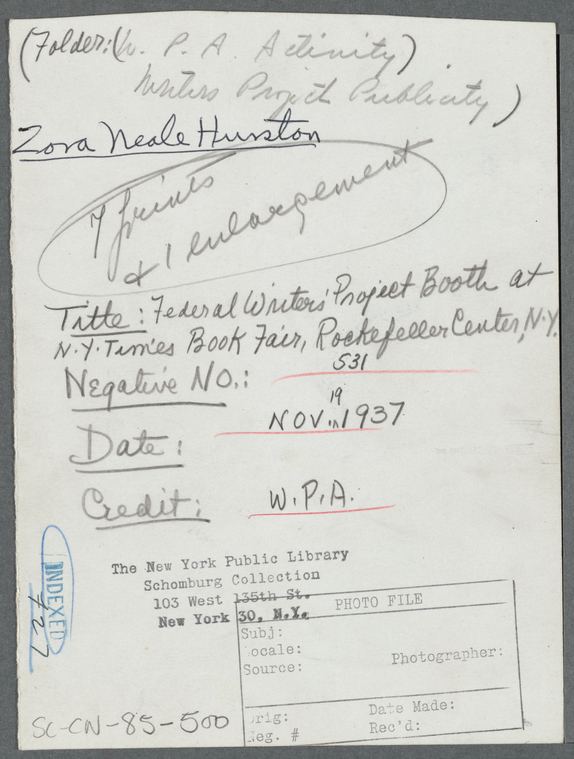 (Folder: (W. P. A. Activity)
Writers Project Publicity)
Zora Neale Hurston
7 prints
& 1 enlargement
Title: Federal Writers' Project Booth at
N.Y. Times Book Fair, Rockefeller Center, N.Y.
Negative No.: 531
Date: Nov. 19, 1937
Credit: W.P.A.
INDEXED
The New York Public Library
Schomburg Collection
103 West 135th St.
New York 30, N.Y.
PHOTO FILE
Subj:
Locale:
Source: Photographer:
Orig: Date Made:
Neg. # Rec'd:
SC-CN-85-500